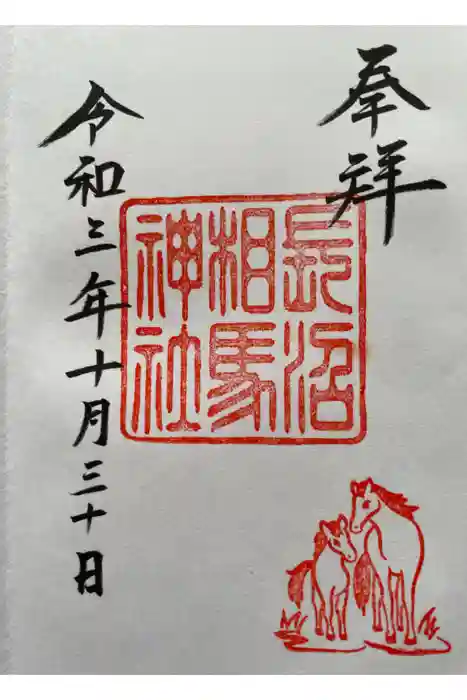 奉拝
長沼
相馬
神社
令和三年十月三十日